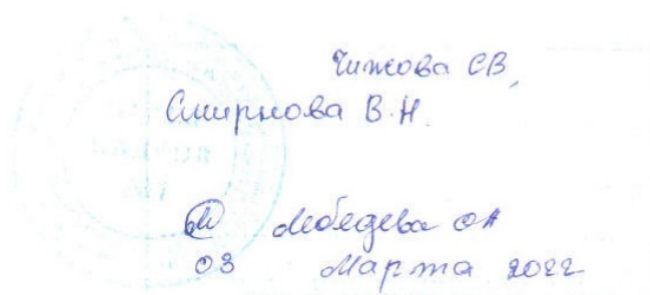 Чижова СВ,
Смирнова В.Н.
Лебедева ОА
03 Марта 2022